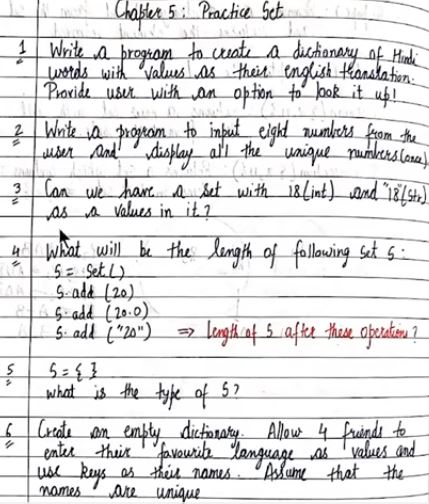 Chapter 5 : Practice Set
1 Write a program to create a dictionary of Hindi
words with values as their english translation.
Provide user with an option to look it up!
2 Write a program to input eight numbers from the
user and display all the unique numbers (once).
3 Can we have a set with 18 (int) and "18" (str)
as a values in it ?
4 What will be the length of following set S :
S = Set ()
S. add (20)
S. add (20.0)
S. add ("20") ⇒ length of S after these operations ?
5 S = { }
what is the type of S ?
6 Create an empty dictionary. Allow 4 friends to
enter their favourite language as values and
use keys as their names. Assume that the
names are unique